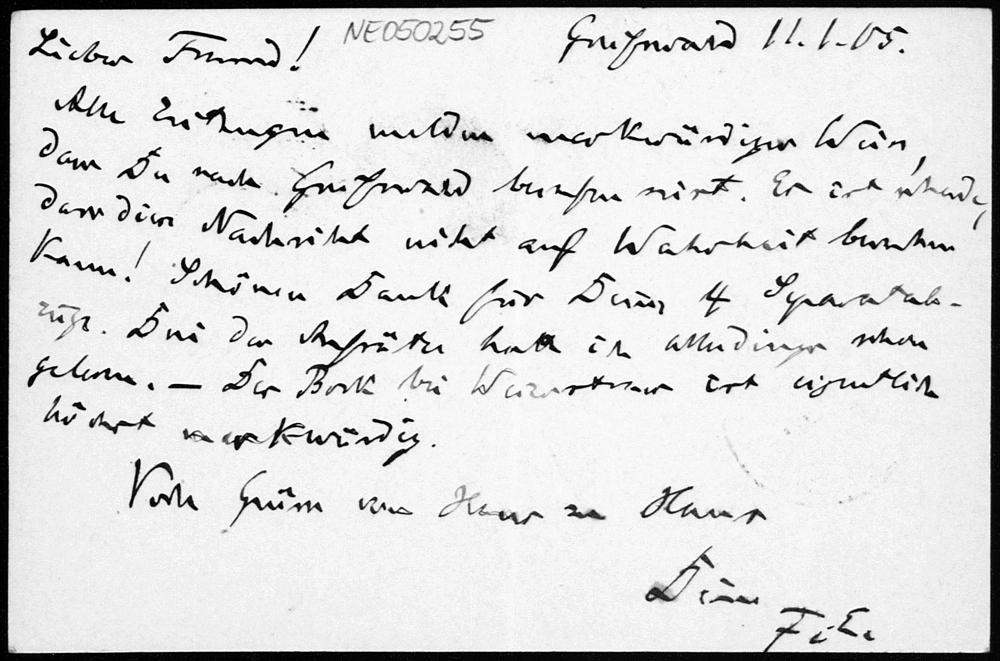 NE050255
Greifswald 11.1.05.
Lieber Freund!
Alle Zeitungen melden merkwürdiger Weise,
dass Du nach Greifswald berufen seist. Es ist schade,
dass diese Nachricht nicht auf Wahrheit beruhen
kann! Schönen Dank für Deine 4 Separatab-
züge. Drei der Aufsätze hatte ich allerdings schon
gelesen. – Der Bock bei Weierstrass ist eigentlich
höchst merkwürdig.
Viele Grüsse von Haus zu Haus
Dein